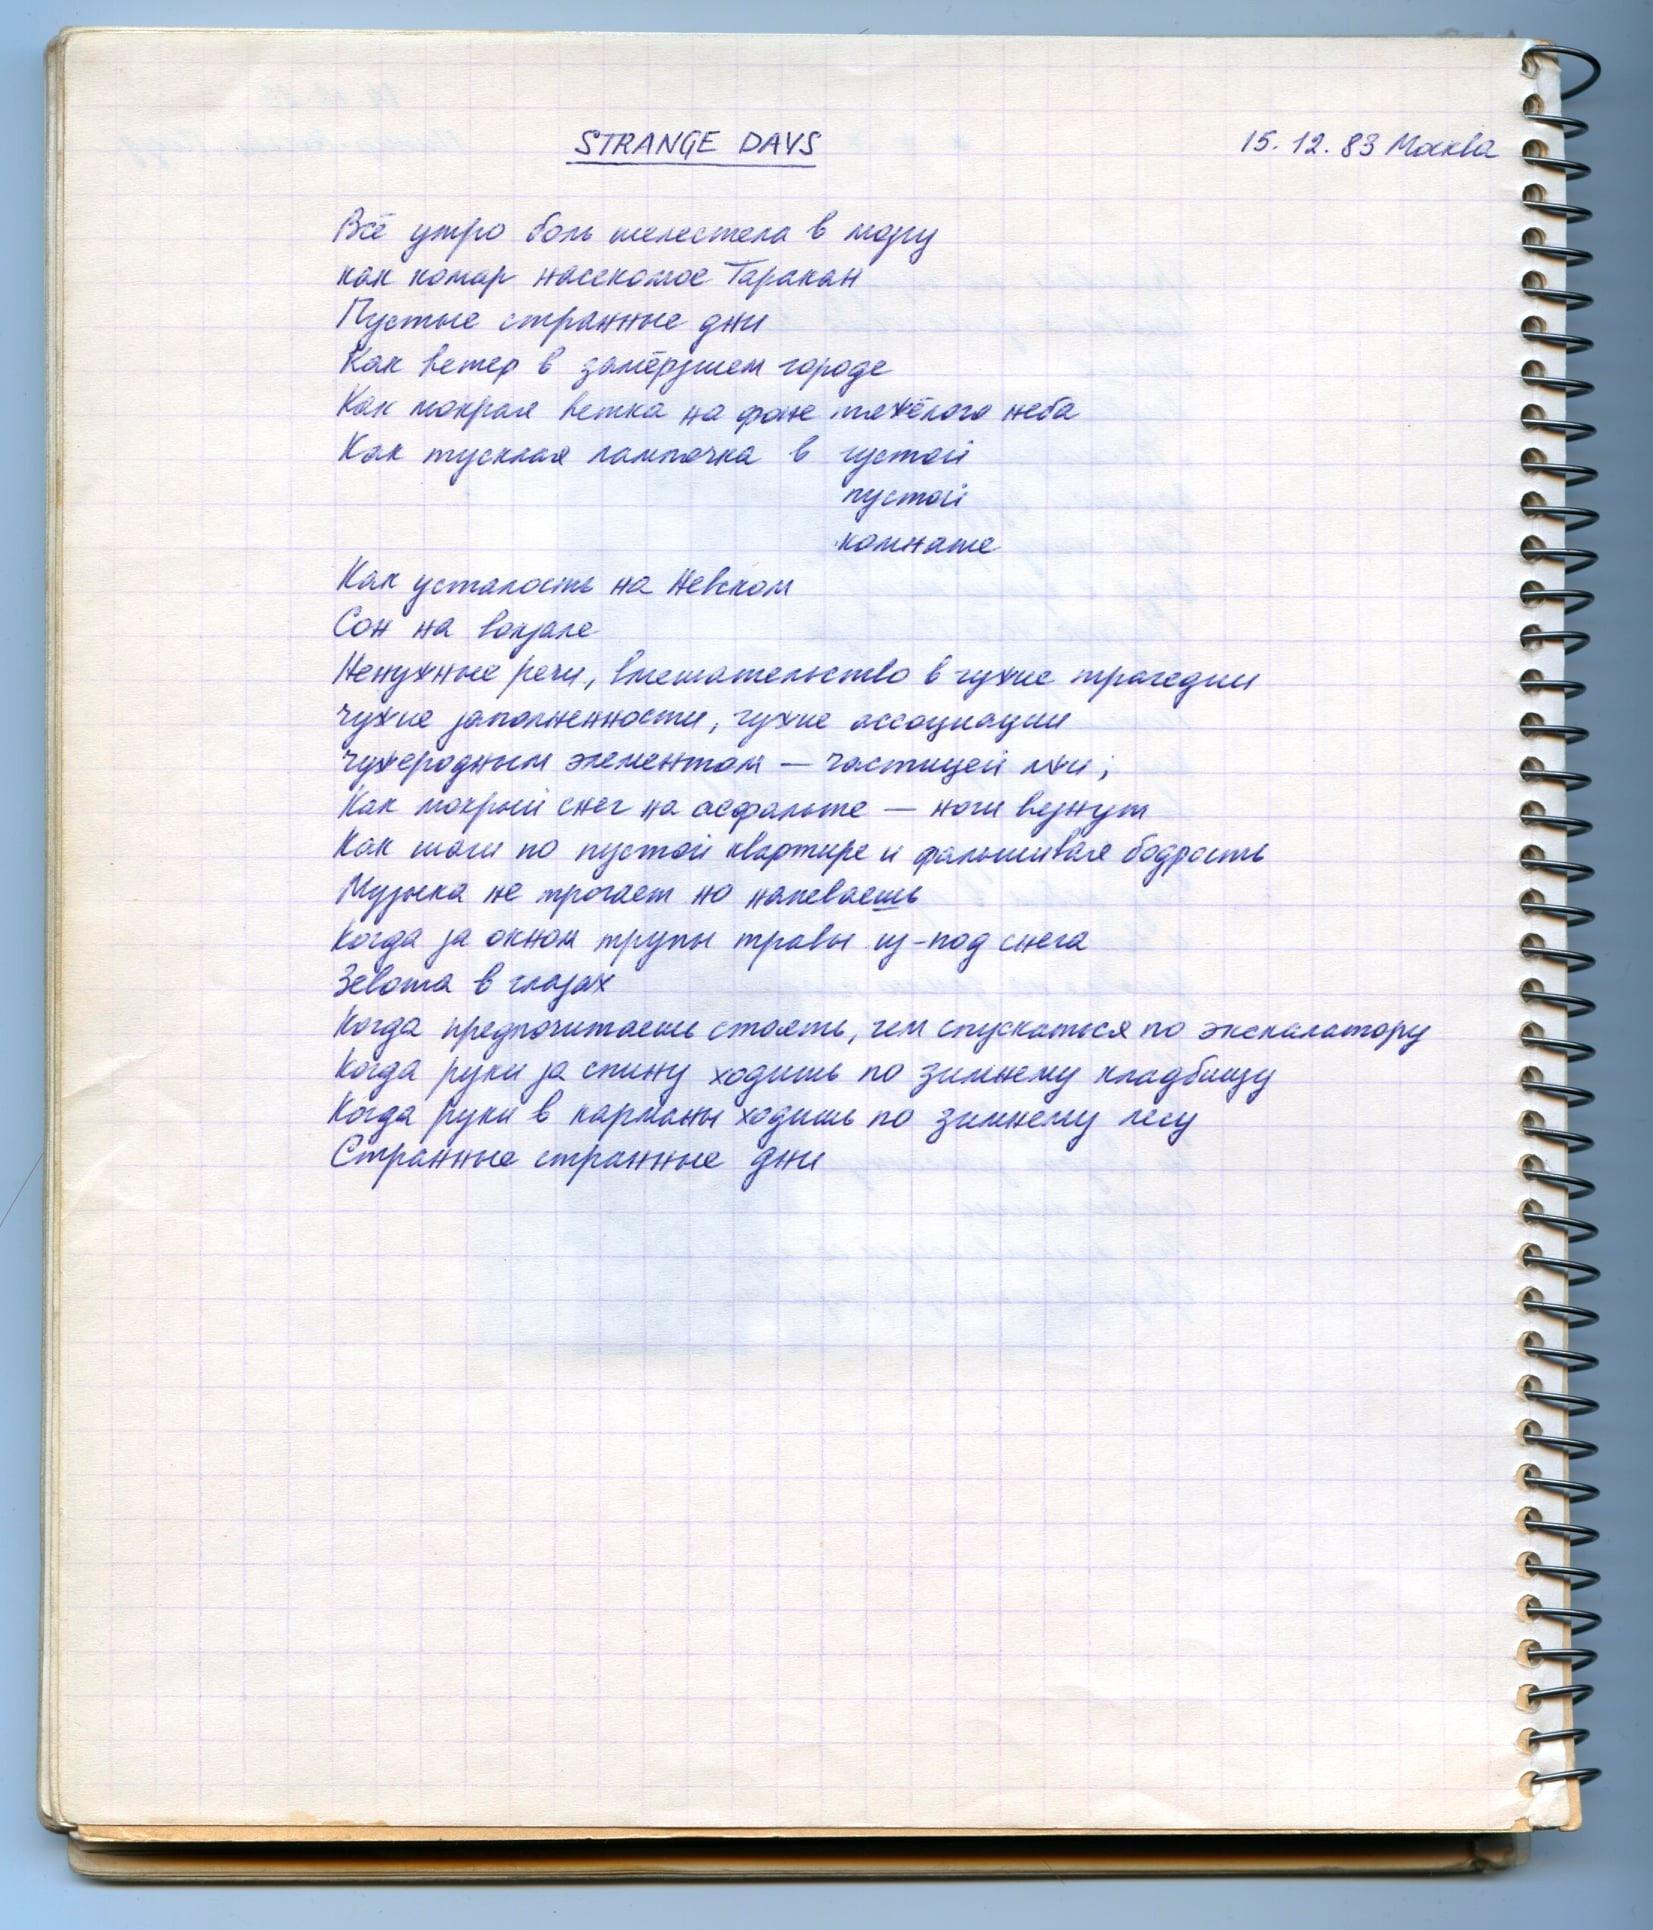 STRANGE DAYS
15.12.83 Москва
Всё утро боль шелестела в мозгу
как комар насекомое Таракан
Пустые странные дни
Как ветер в замёрзшем городе
Как мокрая ветка на фоне тяжёлого неба
Как тусклая лампочка в густой
пустой
комнате
Как усталость на Невском
Сон на вокзале
Ненужные речи, вмешательство в чужие трагедии
чужие заполненности, чужие ассоциации
чужеродным элементом — частицей лжи;
Как мокрый снег на асфальте — ноги вязнут
Как шаги по пустой квартире и фальшивая бодрость
Музыка не трогает но напеваешь
Когда за окном трупы травы из-под снега
Зевота в глазах
Когда предпочитаешь стоять, чем спускаться по экскалатору
Когда руки за спину ходишь по зимнему кладбищу
Когда руки в карманы ходишь по зимнему лесу
Странные странные дни